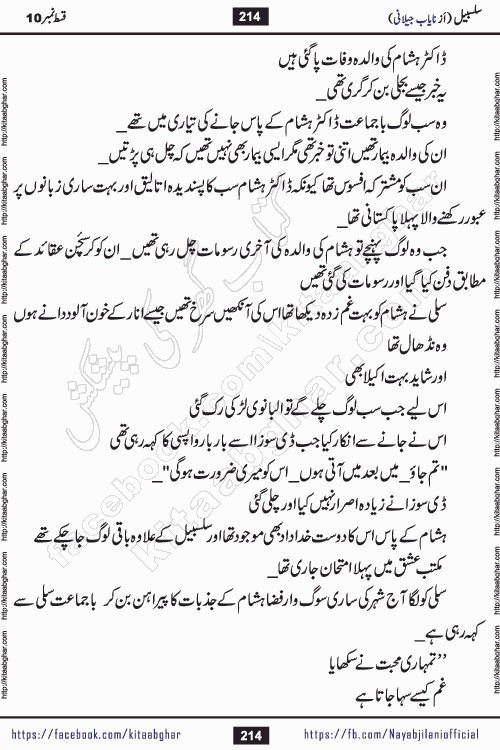 سلسبیل (از نایاب جیلانی) 214 قسط نمبر 10
ڈاکٹر ہشام کی والدہ وفات پا گئی ہیں
یہ خبر جیسے بجلی بن کر گری تھی_
وہ سب لوگ با جماعت ڈاکٹر ہشام کے پاس جانے کی تیاری میں تھے_
ان کی والدہ بیمار تھیں اتنی تو خبر تھی مگر ایسی بیمار بھی نہیں تھیں کہ چل ہی پڑتیں_
ان سب کو مشترکہ افسوس تھا کیونکہ ڈاکٹر ہشام سب کا پسندیدہ اتالیق اور بہت ساری زبانوں پر
عبور رکھنے والا پہلا پاکستانی تھا_
جب وہ لوگ پہنچے تو ہشام کی والدہ کی آخری رسومات چل رہی تھیں_ ان کو کرسچن عقائد کے
مطابق دفن کیا گیا اور رسومات کی گئی تھیں
سلی نے ہشام کو بہت غم زدہ دیکھا تھا اس کی آنکھیں سرخ تھیں جیسے انار کے خون آلود دانے ہوں
وہ نڈھال تھا
اور شاید بہت اکیلا بھی
اس لیے جب سب لوگ چلے گے تو البانوی لڑکی رک گئی
اس نے جانے سے انکار کیا جب ڈی سوزا اسے بار بار واپسی کا کہہ رہی تھی
"تم جاؤ_ میں بعد میں آتی ہوں_ اس کو میری ضرورت ہو گی"_
ڈی سوزا نے زیادہ اصرار نہیں کیا اور چلی گئی
ہشام کے پاس اس کا دوست خداداد بھی موجود تھا اور سلسبیل کے علاوہ باقی لوگ جا چکے تھے
مکتب عشق میں پہلا امتحان جاری تھا_
سلی کو لگا آج شہر کی ساری سوگ وار فضا ہشام کے جذبات کا پیراہن بن کر با جماعت سلی سے
کہہ رہی ہے_
”تمہاری محبت نے سکھایا
غم کیسے سہا جاتا ہے
https://facebook.com/kitaabghar 214 https://fb.com/Nayabjilaniofficial
http://kitaabghar.com
کتاب گھر کی پیشکش
facebook.com/kitaabghar
kitaabghar.com